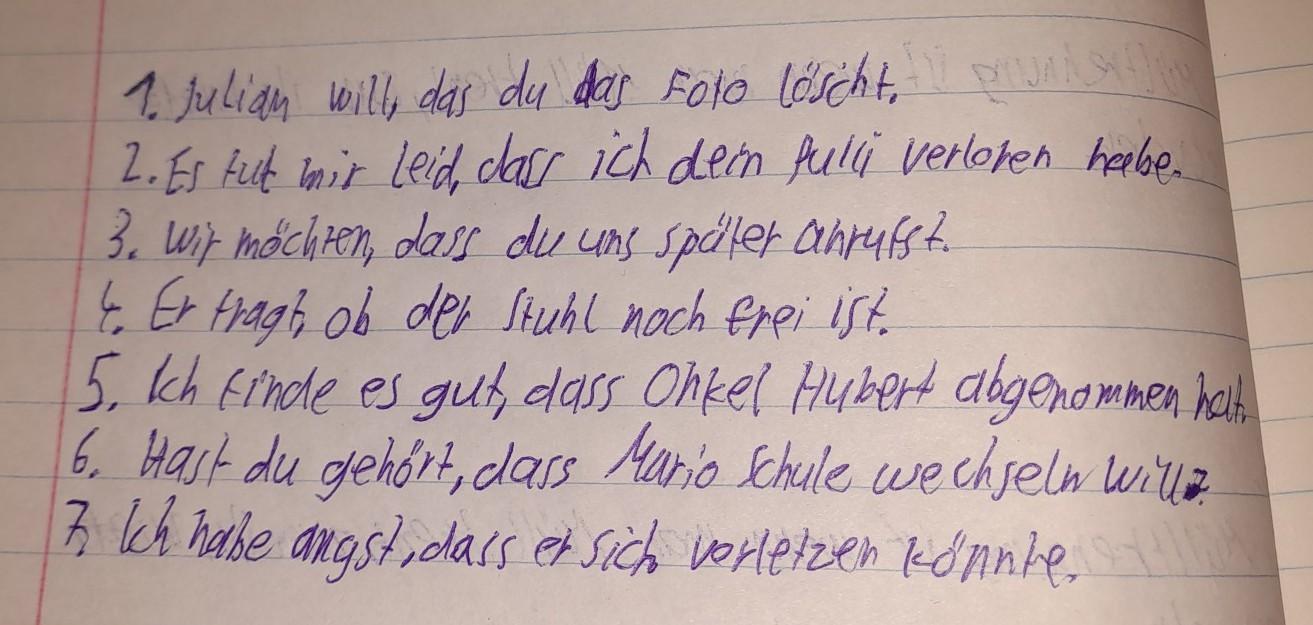 1. Julian will, das du das Foto löscht.
2. Es tut mir leid, dass ich dein Pulli verloren habe.
3. Wir möchten, dass du uns später anrufst.
4. Er fragt, ob der Stuhl noch frei ist.
5. Ich finde es gut, dass Onkel Hubert abgenommen hat.
6. Hast du gehört, dass Mario Schule wechseln will?
7. Ich habe angst, dass er sich verletzen könnte.